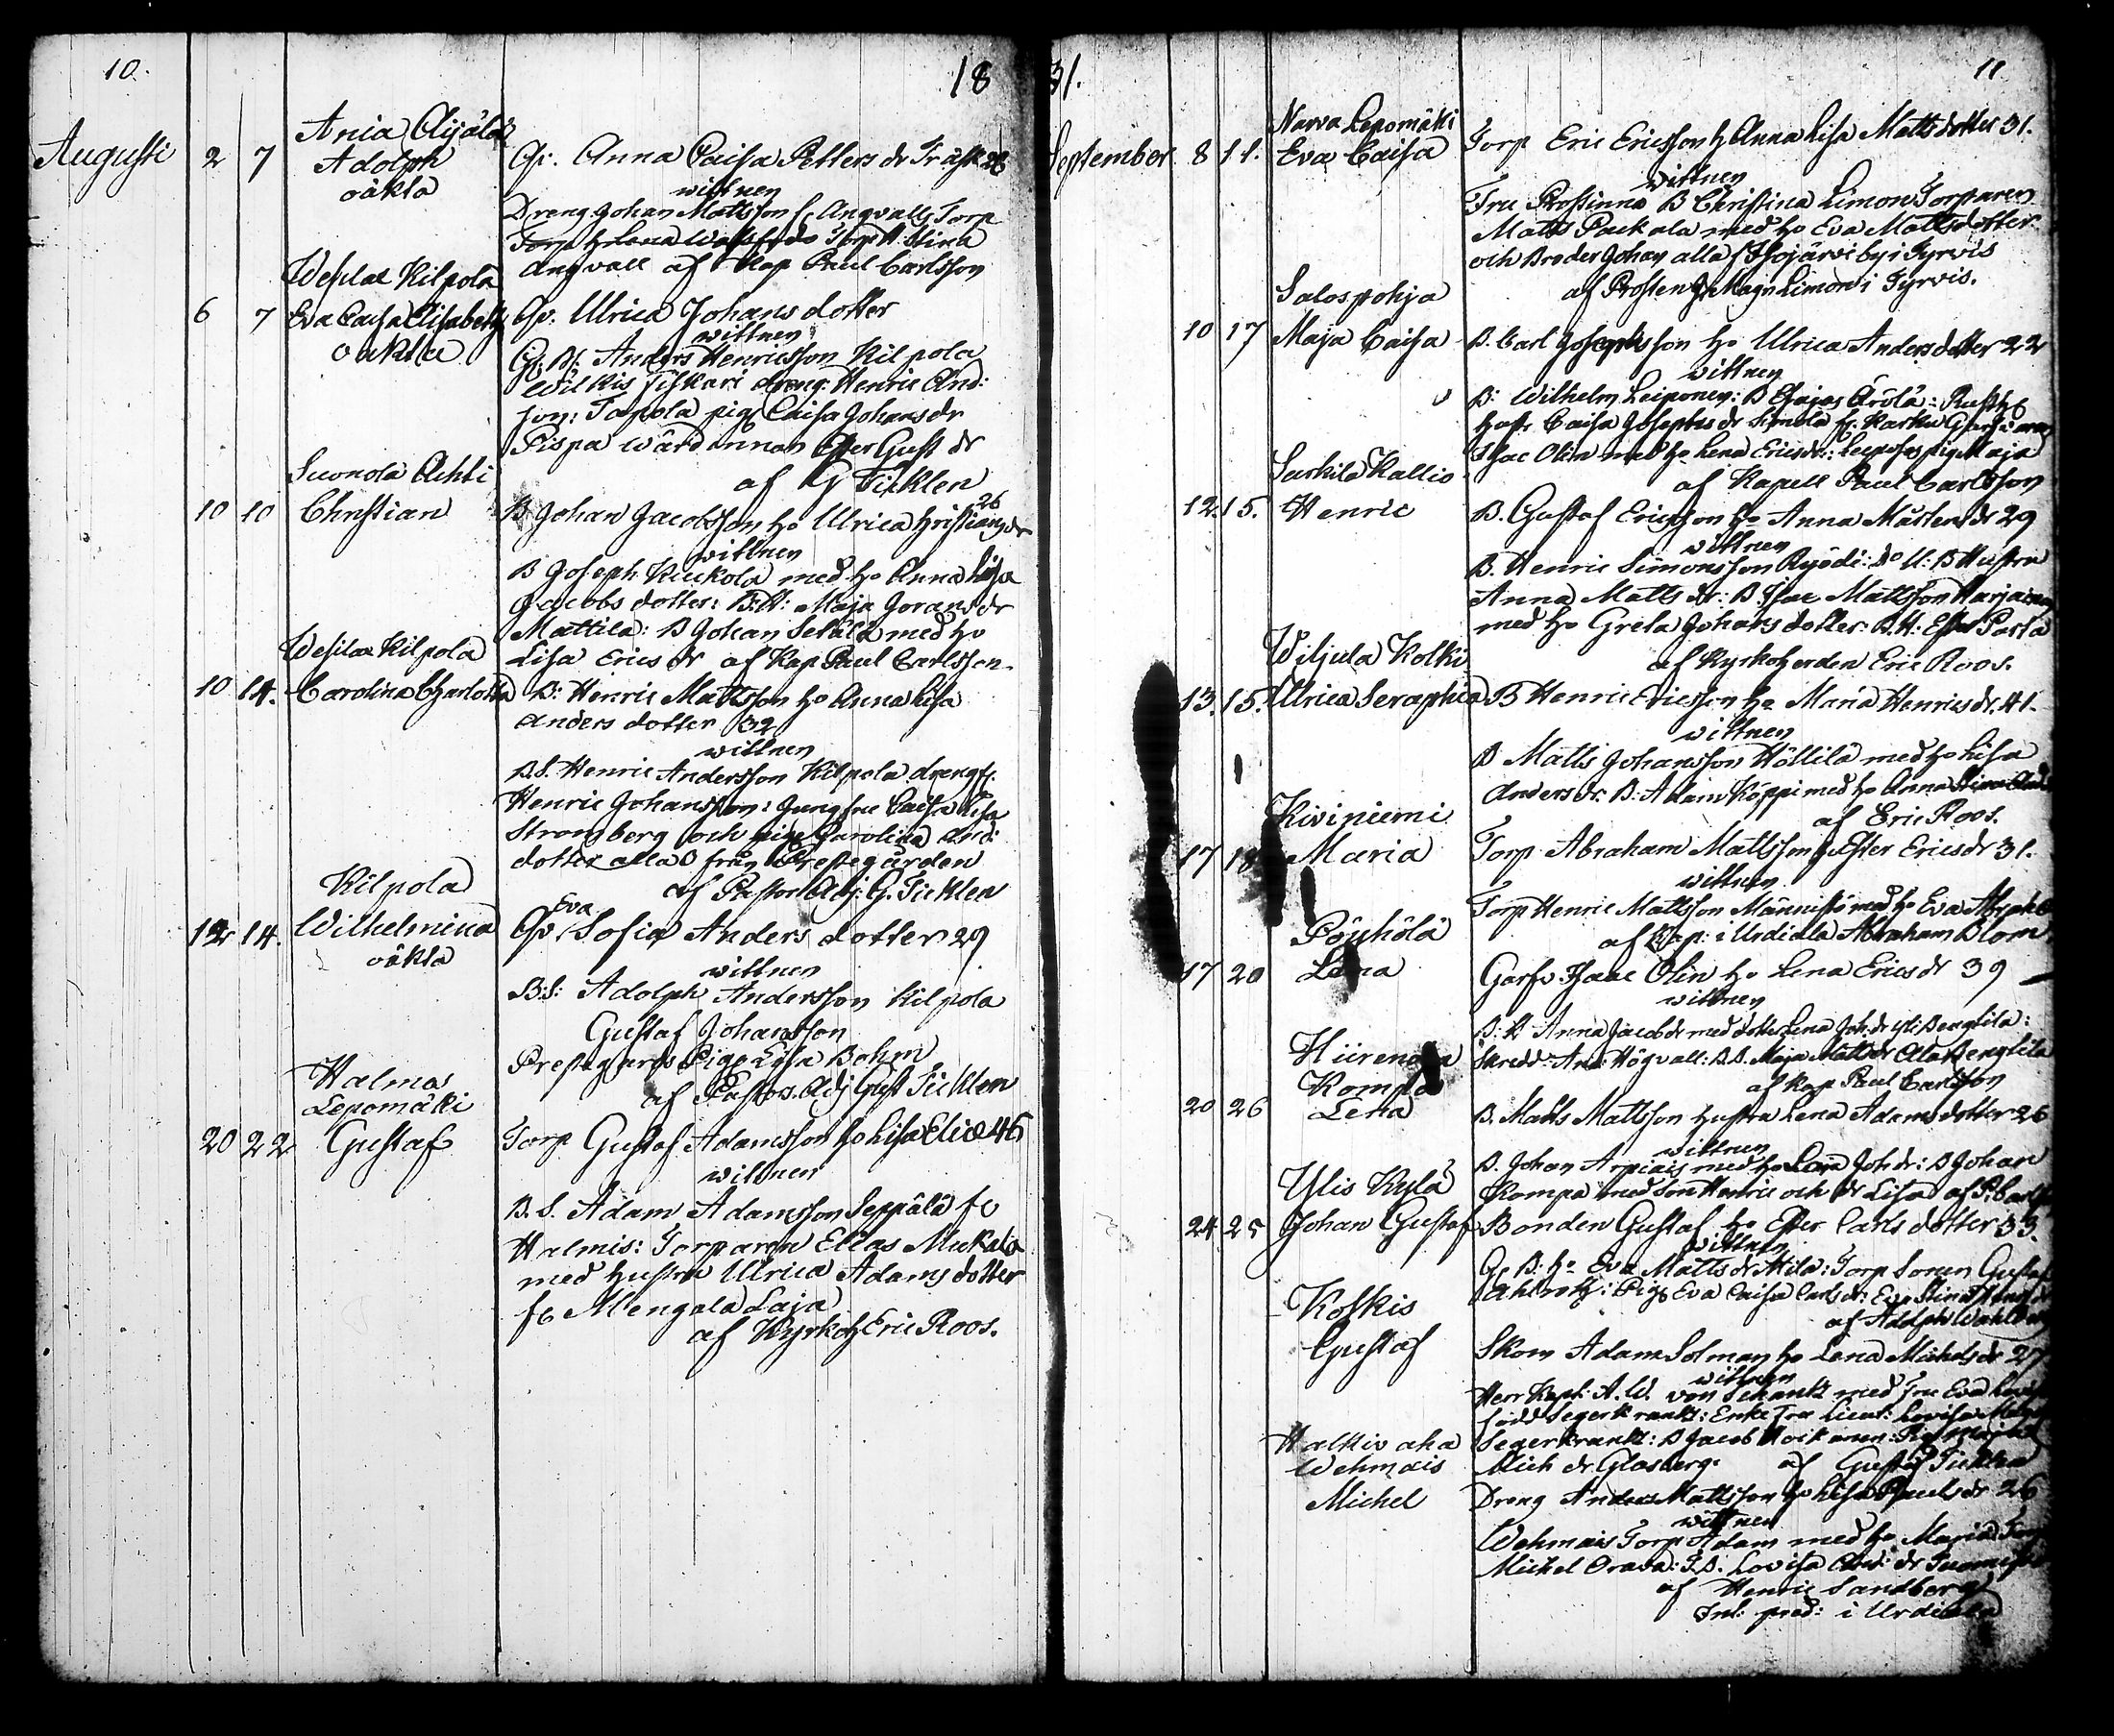 10.
18
Augusti 2 7
Ania Äijälä
Adolph
oäkta
Qv. Anna Caisa Petters dr Träsk
wittnen
Dreng Johan Mattsson f. Angvalls Torp
Torp Stina
Angvall af Kap Paul Carlsson
Wesilax Kilpola
6 7 Eva Caisa Elisabeth
oäkta
Qv. Ulrica Johans dotter
wittnen
Anders Henricsson Kilpola
dreng: Henric And:
son: Tapola pig Caisa Johans dr
Pispa wärdinnan Ester Gust dr
af G Ticklen
Suonola Achti
10 10 Christian
B Johan Jacobsson ho Ulrica Hristians dr
26
wittnen
B Joseph Kuckola med ho Anna Lisa
Jacobs dotter: B.H: Maja Görans dr
Mattila: B Johan Selälä med ho
Lisa Erics dr af Kap Paul Carlsson
Wesilax Kilpola
10 14. Carolina Charlotta
B: Henric Mattsson ho Anna Lisa
Anders dotter 32
wittnen
B.S. Henric Andersson Kilpola dreng
Henric Johansson: Jungfru Caisa Lisa
Stromberg och pige Carolina And:
dotter alla från Prestegården
af Pastor Adj: G. Ticklen
Kilpola
12 14. Wilhelmina
oäkta
Qv. Eva Sofia Anders dotter 29
wittnen
B.S: Adolph Andersson Kilpola
Gustaf Johansson
Prestgårds Pige Lisa Bohm
af Pastors Adj Gust Ticklen
Halmas
Lepomäki
20 22 Gustaf
Torp Gustaf Adamsson ho Lisa Elice 46
wittnen
B.S. Adam Adamsson Seppälä fr
Halmis: Torparen Elias Mukala
med hustru Ulrica Adams dotter
fr Mengala Laja
af Kyrkoh Eric Roos.
31.
11
September 8 11.
Narva Lepomäki
Eva Caisa
Torp Eric Ericsson h Anna Lisa Matts dotter 31.
wittnen
Fru Prostinna B Christina Limon Torparen
Matts Packala med ho Eva Mattsdotter
och Broder Johan alla f Illojärvi by i Tyrvis
af Prosten J. Magn Limon i Tyrvis.
Salospohja
10 17 Maja Caisa
B. Carl Josephsson ho Ulrica Anders dotter 22
wittnen
B: Wilhelm Leiponen: B Esajas Ärölä: Rusth
Caisa Josephs dr Simola fr. Karku Garfvaren
Isac Olin med ho Lena Ericsdr: pig Maja
af Kapell Paul Carlsson
Sarkila Kallio
12. 15. Henric
B. Gustaf Ericsson ho Anna Mårtens dr 29
wittnen
B. Henric Simonsson Ryödi: do U: B Hustru
Anna Matts dr: B Isac Mattsson
med ho Greta Johans dotter: B.H: Ester Parta
af Kyrkoherden Eric Roos.
Wiljula Kolki
13. 15. Ulrica Seraphia
B Henric Ericsson ho Maria Henrics dr. 41.
wittnen
B Matts Johansson Höllilä med ho Lisa
Anders dr. B: Adam Köppi med ho Anna
af Eric Roos.
Kiviniemi
17 18 Maria
Torp Abraham Mattsson h Ester Erics dr 31.
wittnen
Torp Henric Mattsson Männistö med ho Eva
af Kap: i Urdiala Abraham Blom
Pöyhölä
17 20 Lena
Garfv Isaac Olin ho Lena Erics dr 39
wittnen
B: H Anna Jacobdr med dotter Lena Joh: dr yli Bengtila:
Skredd: And: Högvall: B.S. Maja Matts dr Ala Bengtila
af Kap Paul Carlsson
Hiirenoja
Kompa
20 26 Lena
B. Matts Mattsson hustru Lena Adams dotter 26
wittnen
B. Johan Arpiais med ho Lena Joh dr: B Johan
Kompa med son Henric och dr Lisa af P. Carls
Ylis Kylä
24. 25 Johan Gustaf
Bonden Gustaf ho Ester Carls dotter 33.
wittnen
G: B: ho Eva Matts dr Atila: Torp Soren Gustaf
Ahlroth: Pig Eva Caisa Carls dr: Eva Stina
af Adolph Wahlberg
Kolkis
Gustaf
Skom Adam Solman ho Lena Michels dr 27
wittnen
Herr Kapt: A. W. von Schantz med Fru Eva
född Segerkrantz: Enke Fru Lieut: Lovisa
Segerkrantz: B Jacob
Mich dr Glasberg. af Gustaf Ticklen
Halkivaha
Wehmais
Michel
Dreng Anders Mattsson ho Lisa Pauls dr 26
wittnen
Wehmais Torp Adam med ho Maria Torp
Michel Orava: Lovisa And: dr
af Henric Sandberg
pred: i Urdiala